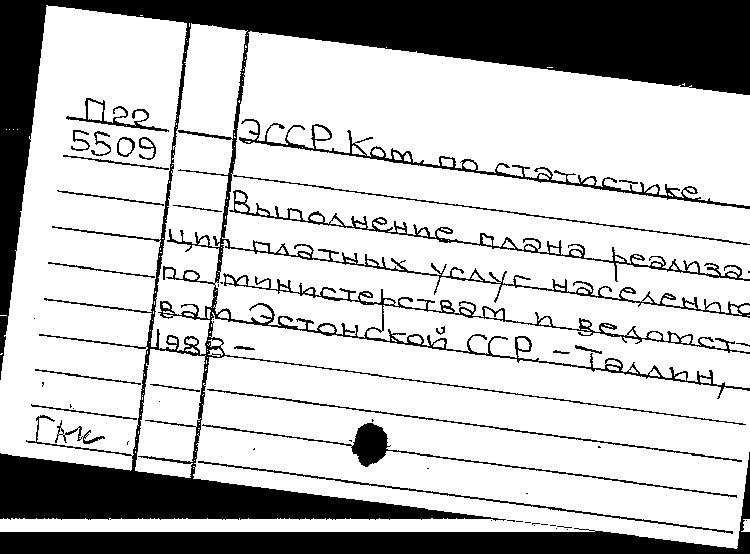 П22
5509
ЭССР. Ком. по статистике.
Выполнение плана реализа-
ции платных услуг населению
по министерствам и ведомст-
вам Эстонской ССР. - Таллин,
1988 -